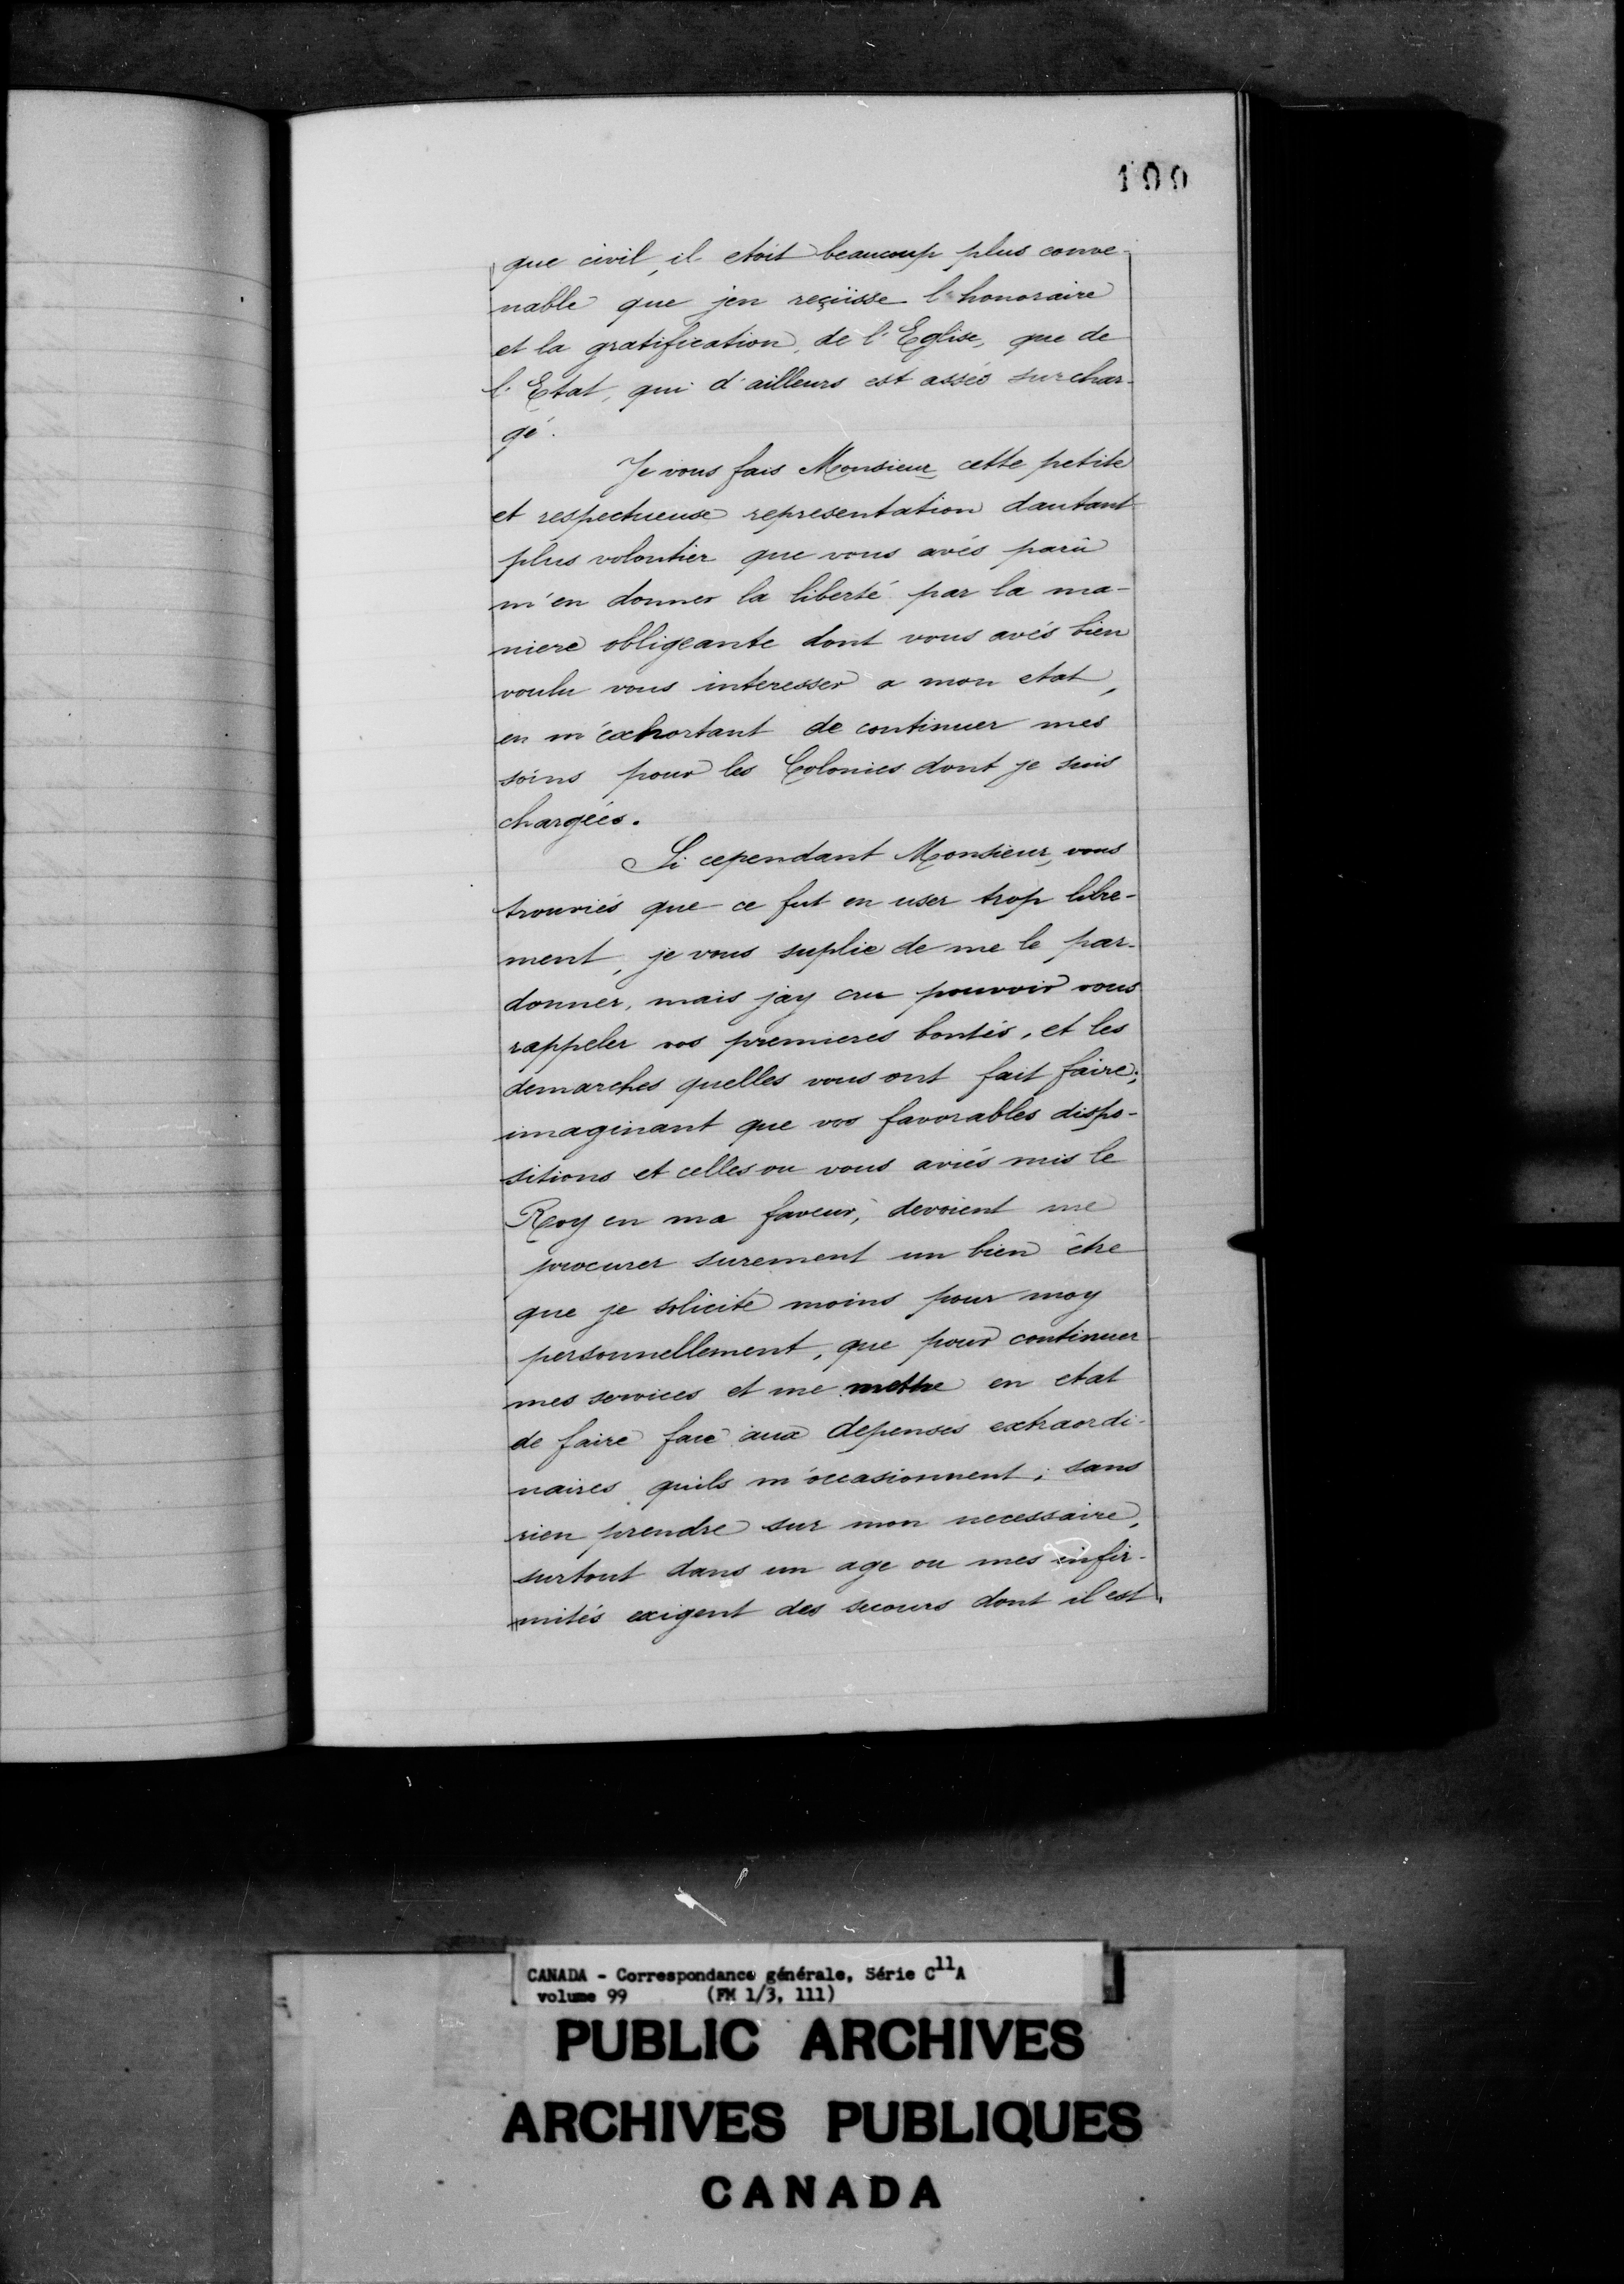 100
que civil, il etoit beaucoup plus conve-
nable que jen reçüsse l'honoraire
et la gratification, de l'Eglise, que de
l'Etat, qui d'ailleurs est assés surchar-
gé.
Je vous fais Monsieur cette petite
et respectueuse representation dautant
plus volontier que vous avés parû
m'en donner la liberté par la ma-
niere obligeante dont vous avés bien
voulu vous interesser a mon etat,
en m'éxhortant de continuer mes
soins pour les Colonies dont je suis
chargées.
Si cependant Monsieur, vous
trouviés que ce fut en user trop libre-
ment, je vous suplie de me le par-
donner, mais jay cru pouvoir vous
rappeler vos premieres bontés, et les
demarches quelles vous ont fait faire;
imaginant que vos favorables dispo-
sitions et celles ou vous aviés mis le
Roy en ma faveur, devoient me
procurer surement un bien être
que je solicite moins pour moy
personnellement, que pour continuer
mes services et me mettre en etat
de faire face aux depenses extraordi-
naires quils m'occasionnent; sans
rien prendre sur mon necessaire,
surtout dans un age ou mes infir-
mités exigent des secours dont il est
CANADA - Correspondance générale, Série C11A
volume 99 (FM 1/3, 111)
PUBLIC ARCHIVES
ARCHIVES PUBLIQUES
CANADA